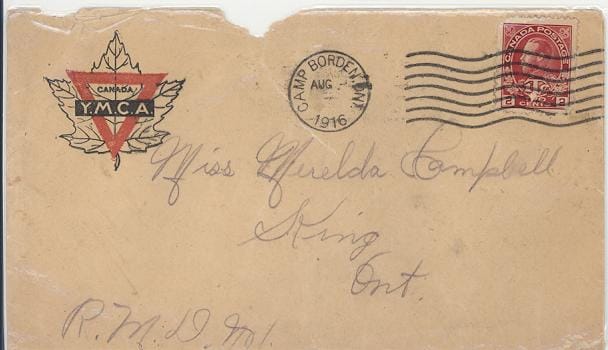 CANADA
Y.M.C.A
CAMP BORDEN, ONT.
AUG
1916
CANADA POSTAGE
2 CENTS 2
Miss Merelda Campbell
King
Ont.
R. M. D. No 1.